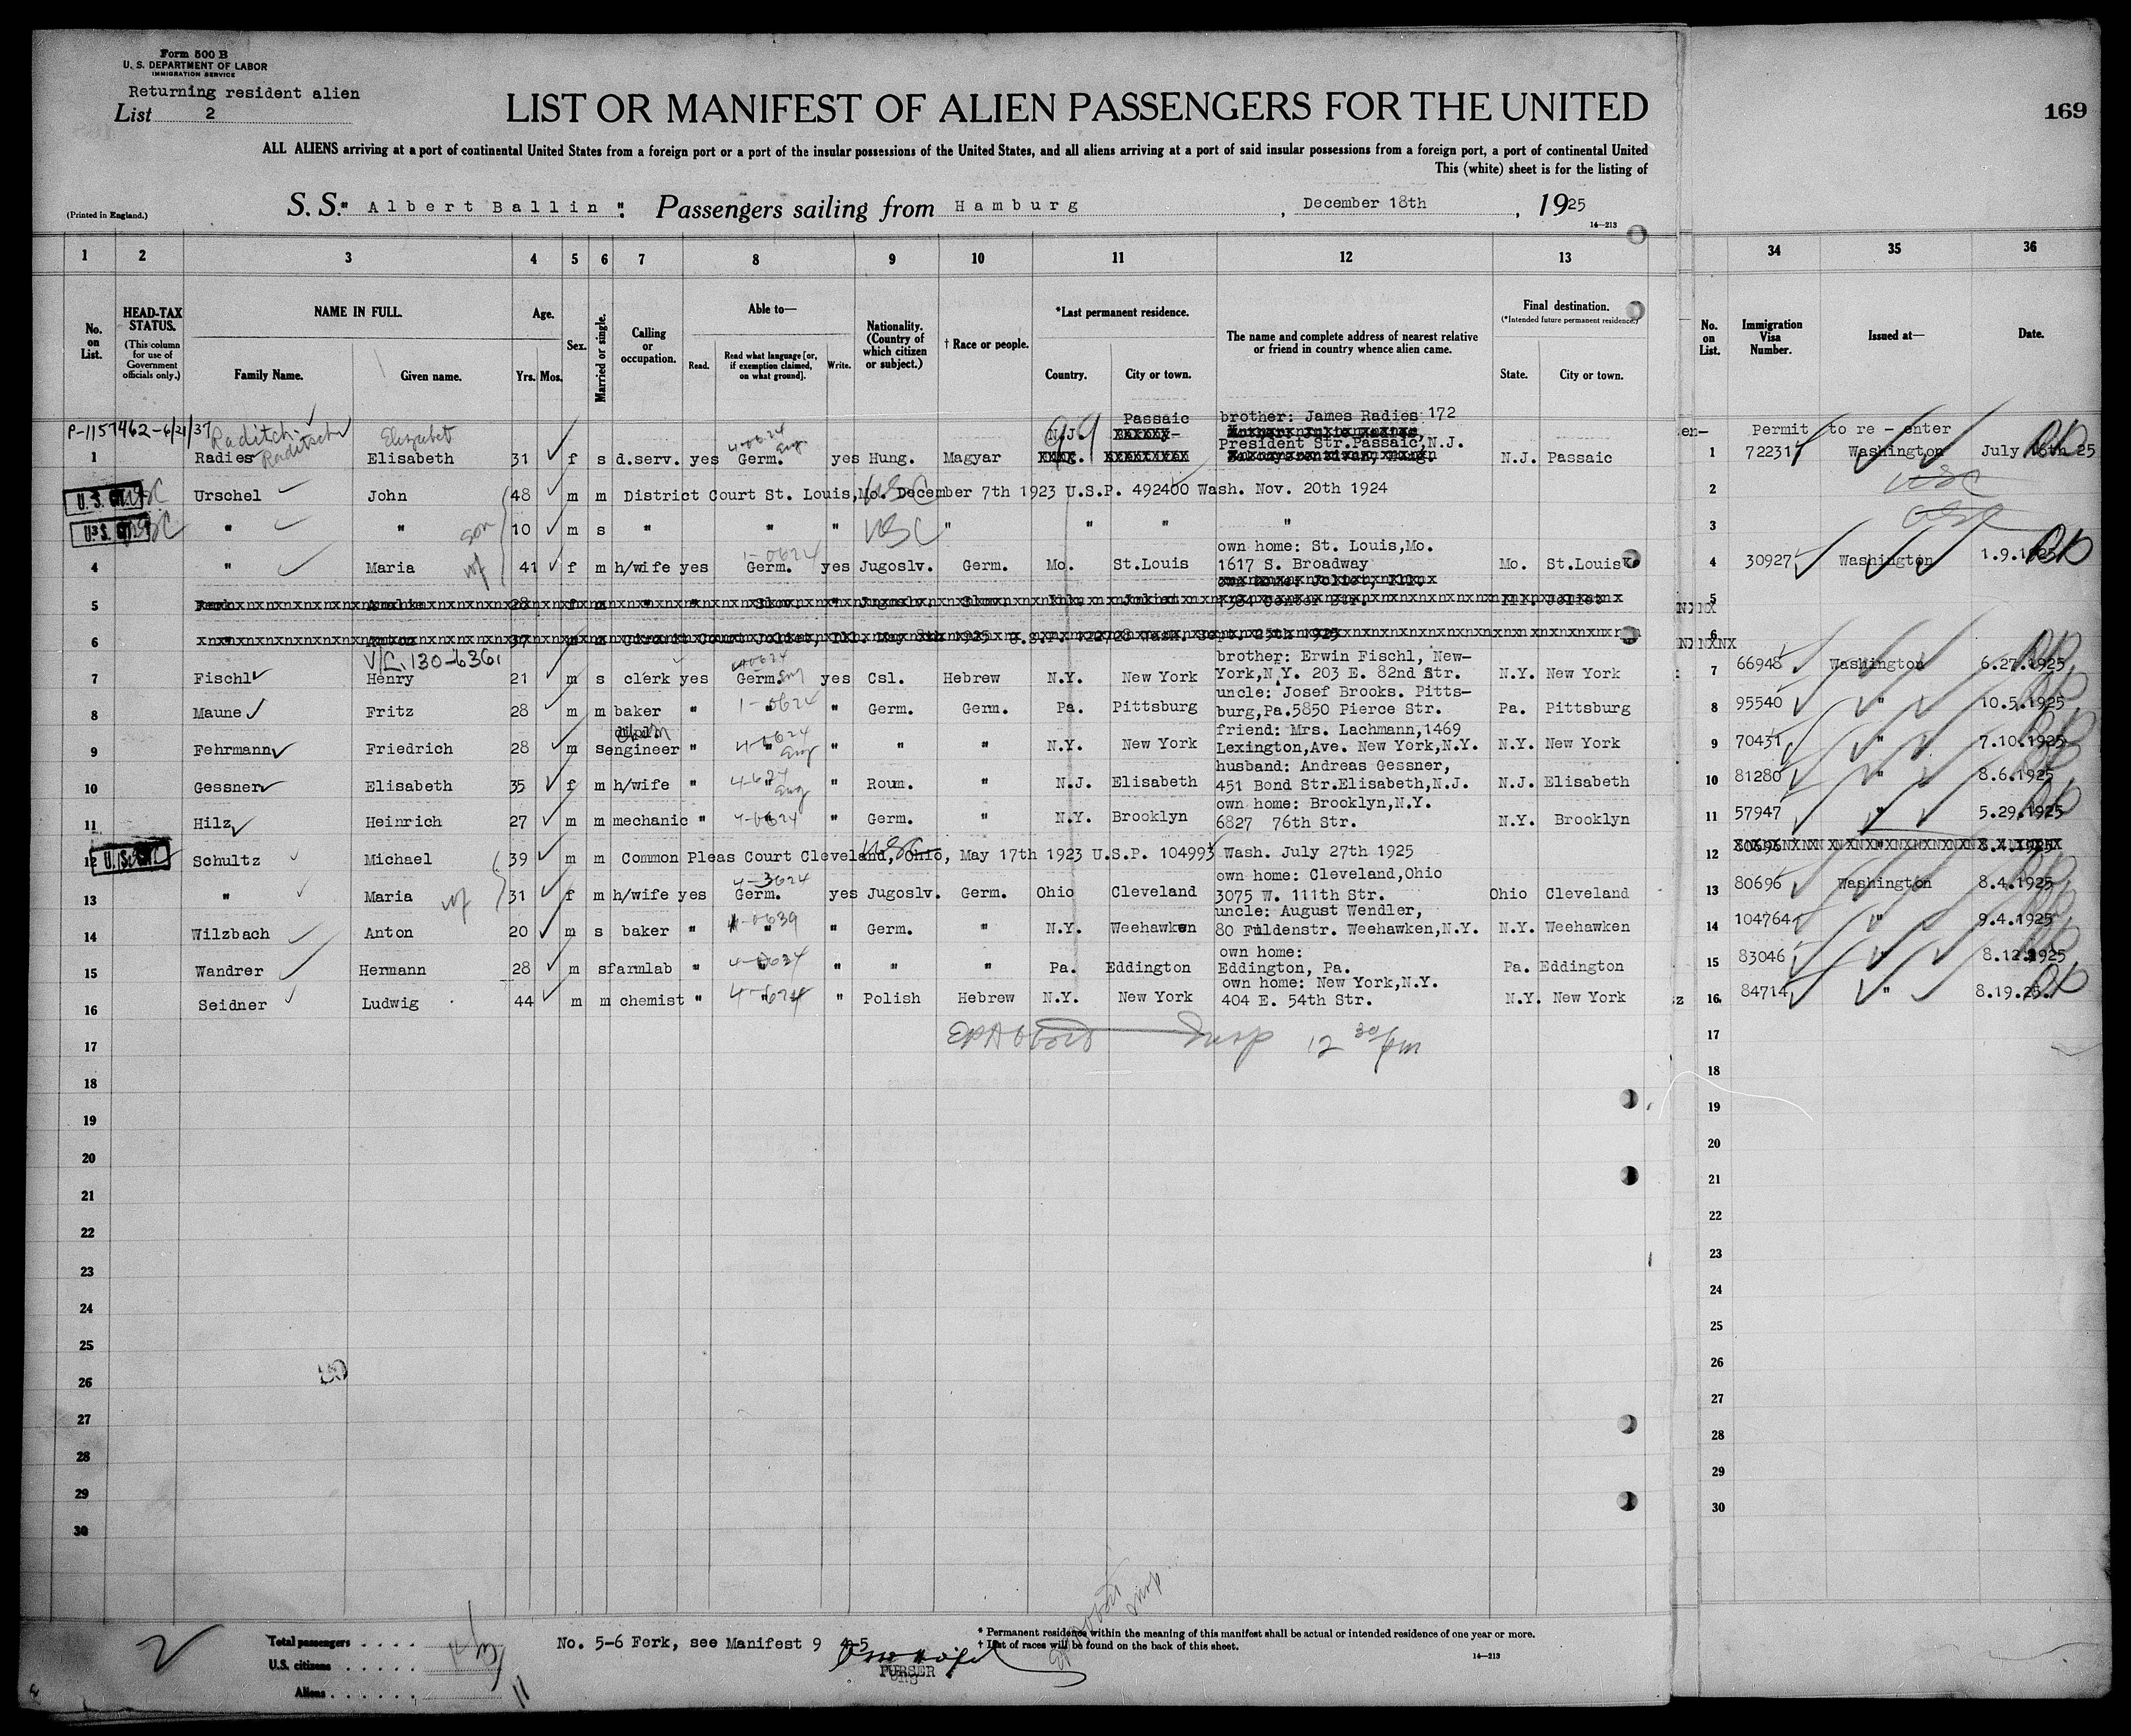 Form 500 B
U. S. DEPARTMENT OF LABOR
IMMIGRATION SERVICE
Returning resident alien
List 2
LIST OR MANIFEST OF ALIEN PASSENGERS FOR THE UNITED
169
ALL ALIENS arriving at a port of continental United States from a foreign port or a port of the insular possessions of the United States, and all aliens arriving at a port of said insular possessions from a foreign port, a port of continental United
This (white) sheet is for the listing of
(Printed in England.)
S. S. " Albert Ballin ". Passengers sailing from Hamburg, December 18th, 1925
14—213
1 2 3 4 5 6 7 8 9 10 11 12 13 34 35 36
No. on List.
HEAD-TAX STATUS. (This column for use of Government officials only.)
NAME IN FULL. Family Name. Given name.
Age. Yrs. Mos.
Sex.
Married or single.
Calling or occupation.
Able to— Read. Read what language [or, if exemption claimed, on what ground]. Write.
Nationality. (Country of which citizen or subject.)
† Race or people.
*Last permanent residence. Country. City or town.
The name and complete address of nearest relative or friend in country whence alien came.
Final destination. (*Intended future permanent residence.) State. City or town.
No. on List.
Immigration Visa Number.
Issued at—
Date.
P-1157462-6/21/37 Raditch Raditsch Elizabet
Passaic brother: James Radies 172
N.J. President Str. Passaic, N.J.
Permit to re - enter
1 Radies Elisabeth 31 f s d.serv. yes Germ. yes Hung. Magyar N.J. Passaic 1 722317 Washington July 16th 25
2 U.S. CIT. USC Urschel John 48 m m District Court St. Louis, Mo. December 7th 1923 U.S.P. 492400 Wash. Nov. 20th 1924 2 USC
3 U.S. CIT. USC " " son 10 m s " " " USC " " " " 3 USC
own home: St. Louis,Mo.
4 " Maria wf 41 f m h/wife yes Germ. yes Jugoslv. Germ. Mo. St.Louis 1617 S. Broadway Mo. St.Louis 4 30927 Washington 1.9.1925
5 5
6 6
V/L. 130-6361
brother: Erwin Fischl, New-
7 Fischl Henry 21 m s clerk yes Germ. Eng yes Csl. Hebrew N.Y. New York York,N.Y. 203 E. 82nd Str. N.Y. New York 7 66948 Washington 6.27.1925
uncle: Josef Brooks. Pitts-
8 Maune Fritz 28 m m baker " " " Germ. Germ. Pa. Pittsburg burg,Pa.5850 Pierce Str. Pa. Pittsburg 8 95540 " 10.5.1925
friend: Mrs. Lachmann,1469
9 Fehrmann Friedrich 28 m s engineer " " Eng " " " N.Y. New York Lexington,Ave. New York,N.Y. N.Y. New York 9 70431 " 7.10.1925
husband: Andreas Gessner,
10 Gessner Elisabeth 35 f m h/wife " " Eng " Roum. " N.J. Elisabeth 451 Bond Str.Elisabeth,N.J. N.J. Elisabeth 10 81280 " 8.6.1925
own home: Brooklyn,N.Y.
11 Hilz Heinrich 27 m m mechanic " " " Germ. " N.Y. Brooklyn 6827 76th Str. N.Y. Brooklyn 11 57947 " 5.29.1925
12 Schultz Michael 39 m m Common Pleas Court Cleveland, Ohio, May 17th 1923 U.S.P. 104993 Wash. July 27th 1925 12 80696 " 8.4.1925
own home: Cleveland,Ohio
13 " Maria wf 31 f m h/wife yes Germ. yes Jugoslv. Germ. Ohio Cleveland 3075 W. 111th Str. Ohio Cleveland 13 80696 Washington 8.4.1925
uncle: August Wendler,
14 Wilzbach Anton 20 m s baker " " " Germ. " N.Y. Weehawken 80 Fuldenstr. Weehawken,N.Y. N.Y. Weehawken 14 104764 " 9.4.1925
own home:
15 Wandrer Hermann 28 m s farmlab " " " " " Pa. Eddington Eddington, Pa. Pa. Eddington 15 83046 " 8.12.1925
own home: New York,N.Y.
16 Seidner Ludwig 44 m m chemist " " " Polish Hebrew N.Y. New York 404 E. 54th Str. N.Y. New York 16 84714 " 8.19.25.
17 Insp 12 30 pm 17
18 18
19 19
20 20
21 21
22 22
23 23
24 24
25 25
26 26
27 27
28 28
29 29
30 30
Total passengers
U.S. citizens
Aliens 11
No. 5-6 Ferk, see Manifest 9 4-5
PURSER
* Permanent residence within the meaning of this manifest shall be actual or intended residence of one year or more.
† List of races will be found on the back of this sheet.
14—213